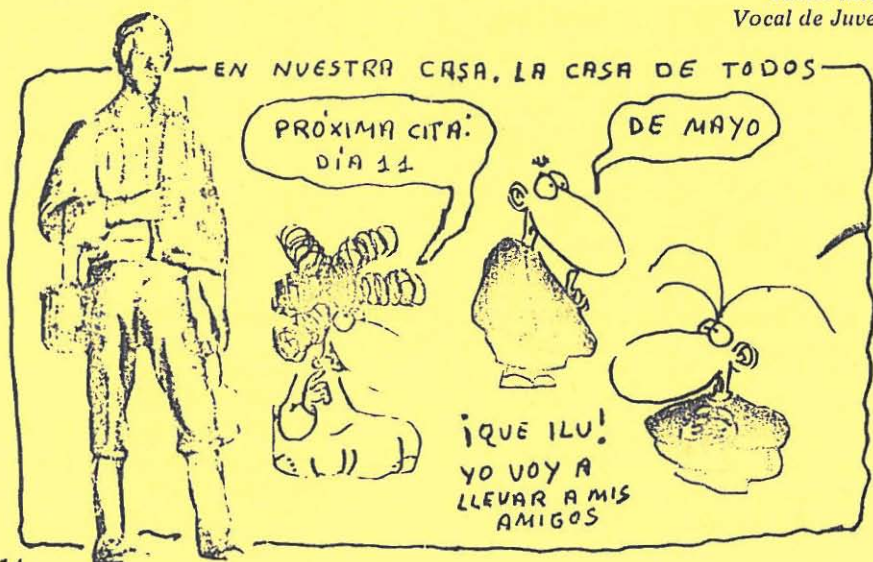 Vocal de Juve
EN NUESTRA CASA, LA CASA DE TODOS
PRÓXIMA CITA:
DÍA 11
DE MAYO
¡QUE ILU!
YO VOY A
LLEVAR A MIS
AMIGOS